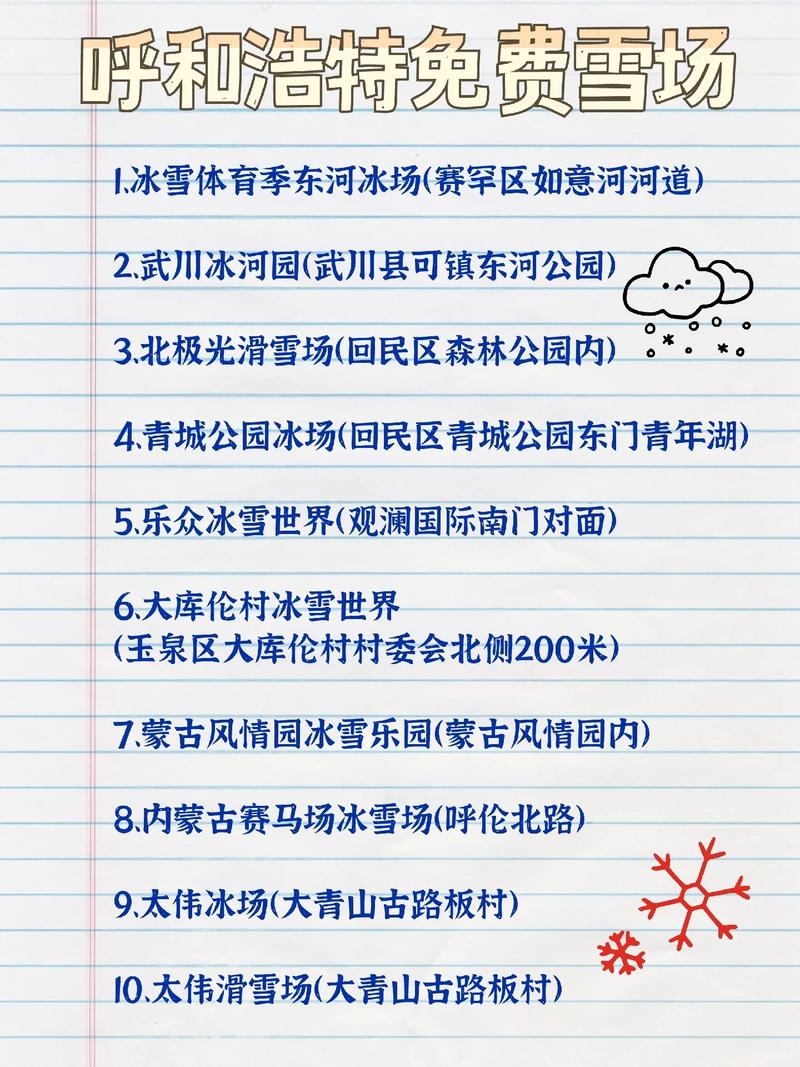 呼和浩特免费雪场
1.冰雪体育季东河冰场(赛罕区如意河河道)
2.武川冰河园(武川县可镇东河公园)
3.北极光滑雪场(回民区森林公园内)
4.青城公园冰场(回民区青城公园东门青年湖)
5.乐众冰雪世界(观澜国际南门对面)
6.大库伦村冰雪世界
(玉泉区大库伦村村委会北侧200米)
7.蒙古风情园冰雪乐园(蒙古风情园内)
8.内蒙古赛马场冰雪场(呼伦北路)
9.太伟冰场(大青山古路板村)
10.太伟滑雪场(大青山古路板村)